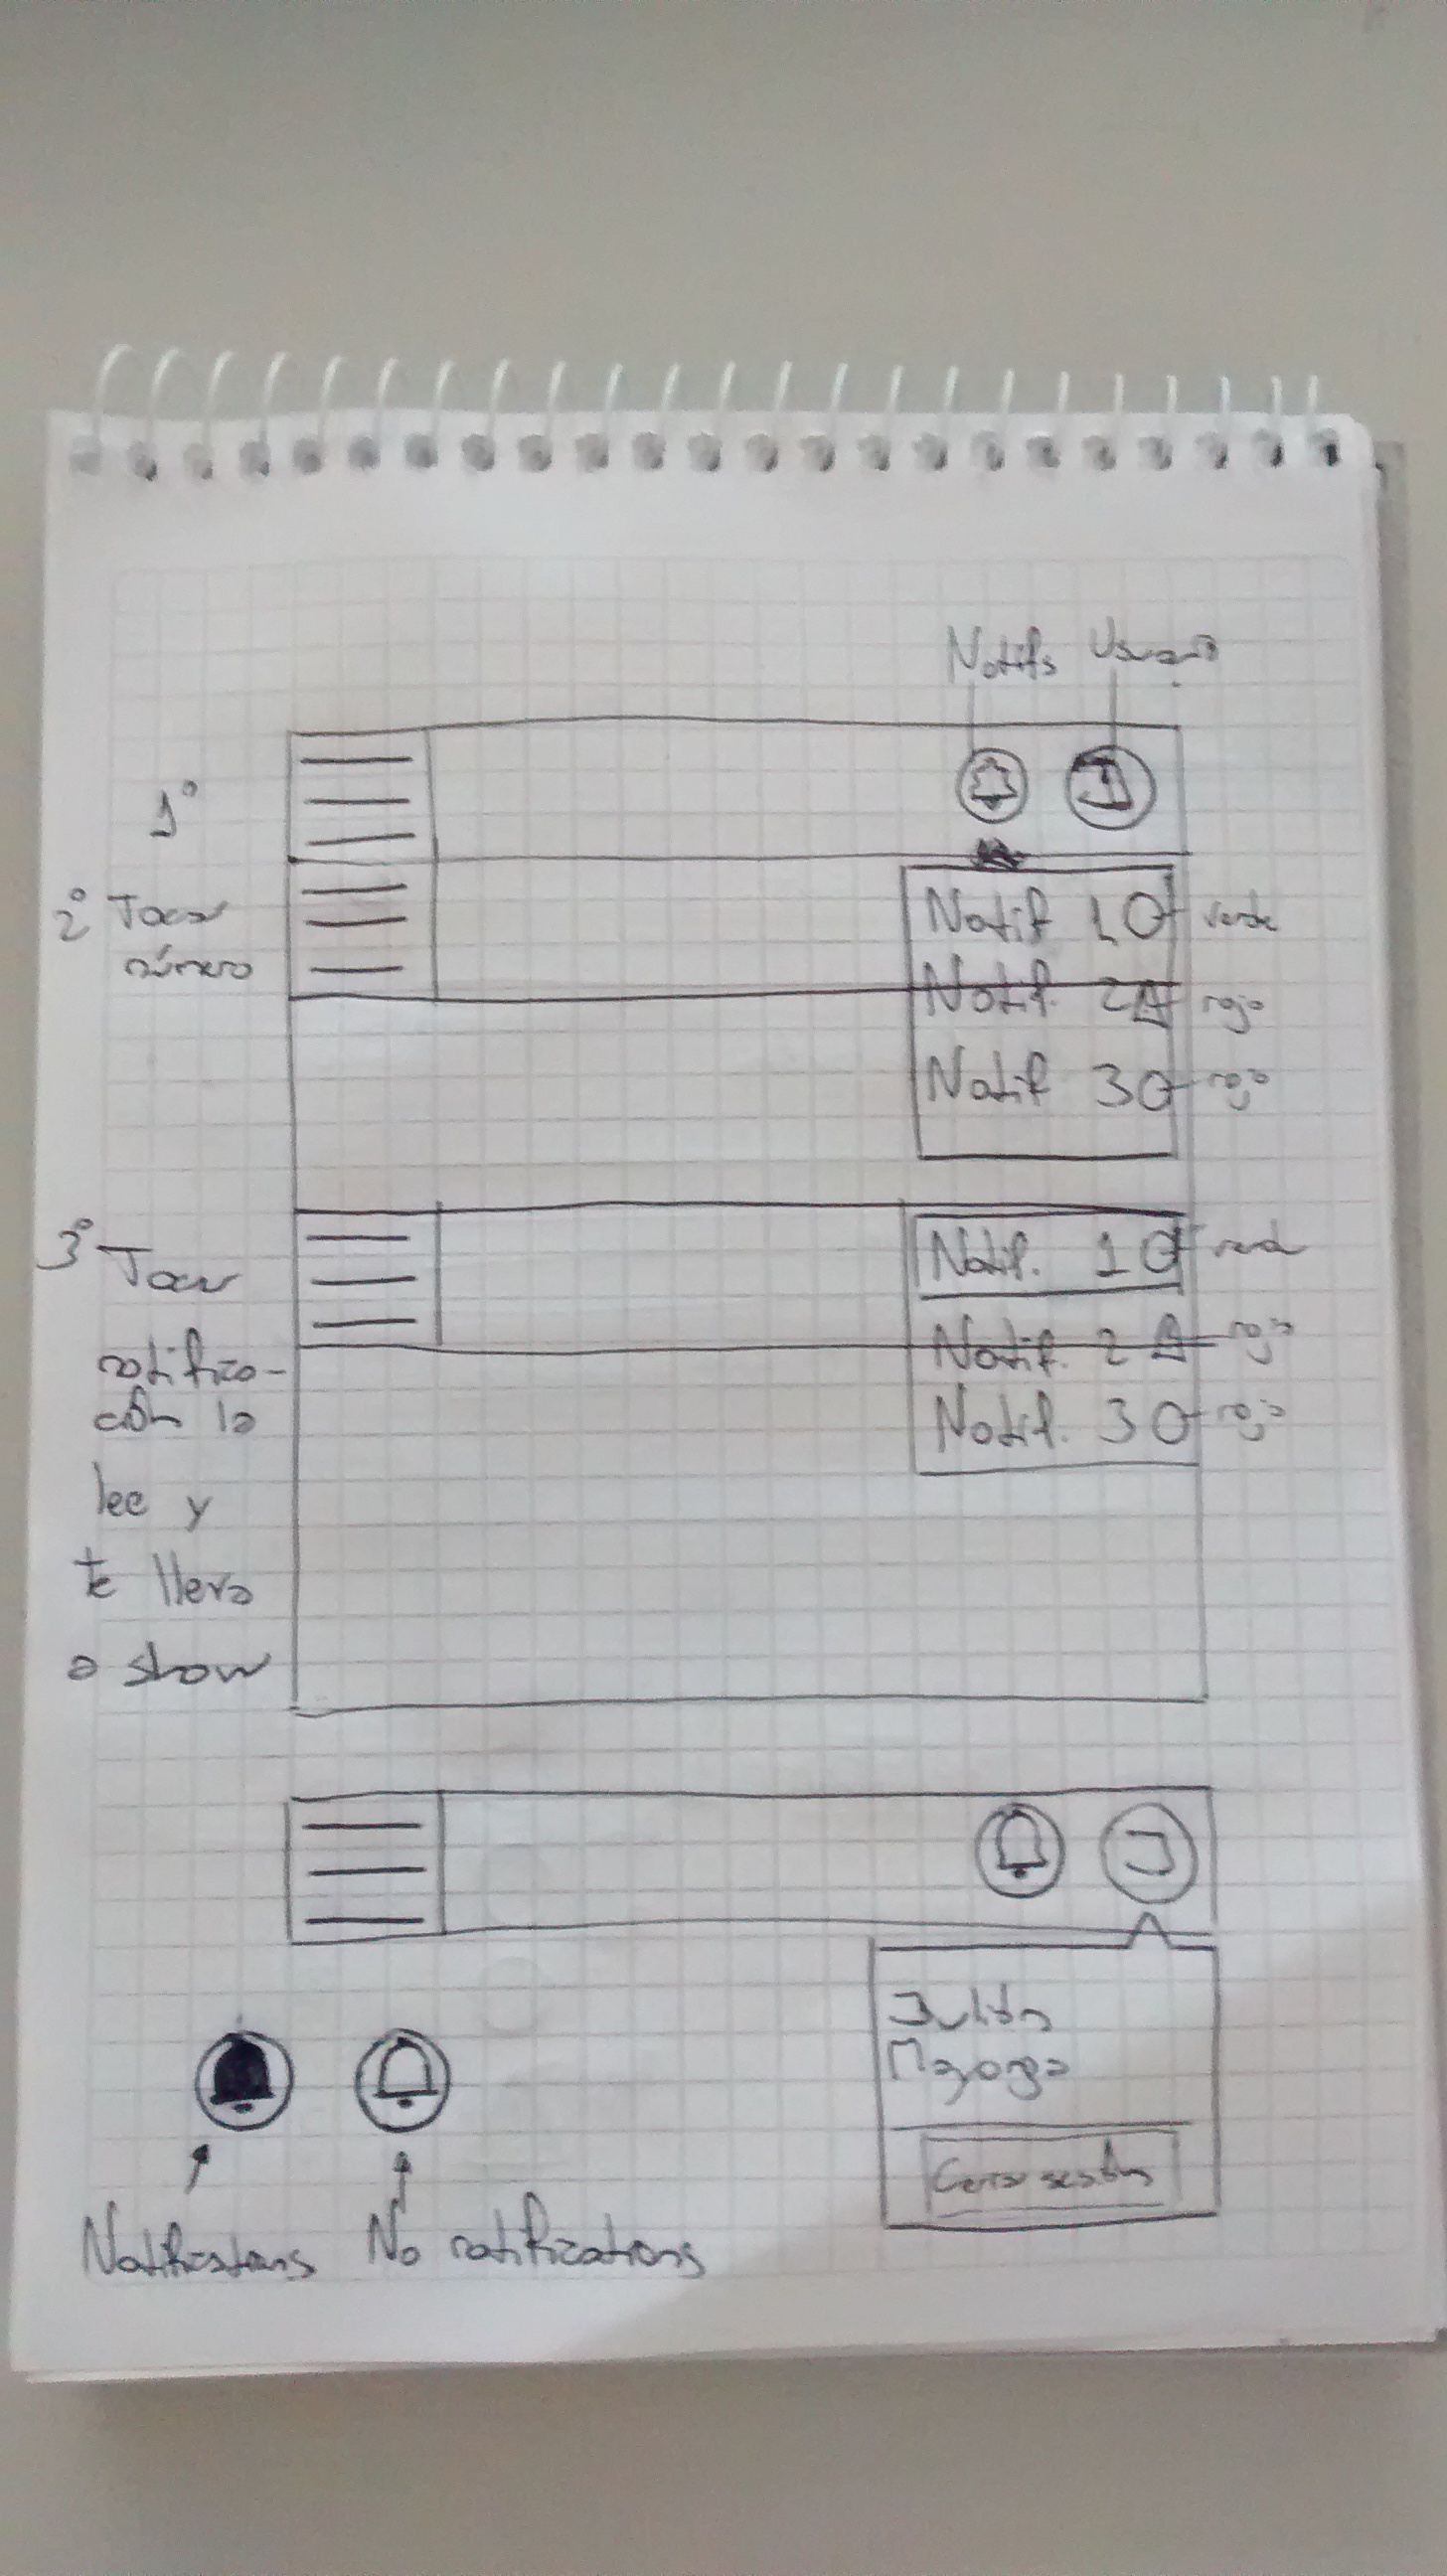 Notifs Usuario
1°
2° Tocar
número
Notif 1 verde
Notif. 2 rojo
Notif 3 rojo
3° Tocar
notifica-
ción la
lee y
te lleva
a show
Notif. 1 verde
Notif. 2 rojo
Notif. 3 rojo
J
Julián
Mayorga
Cerrar sesión
Notifications No notifications